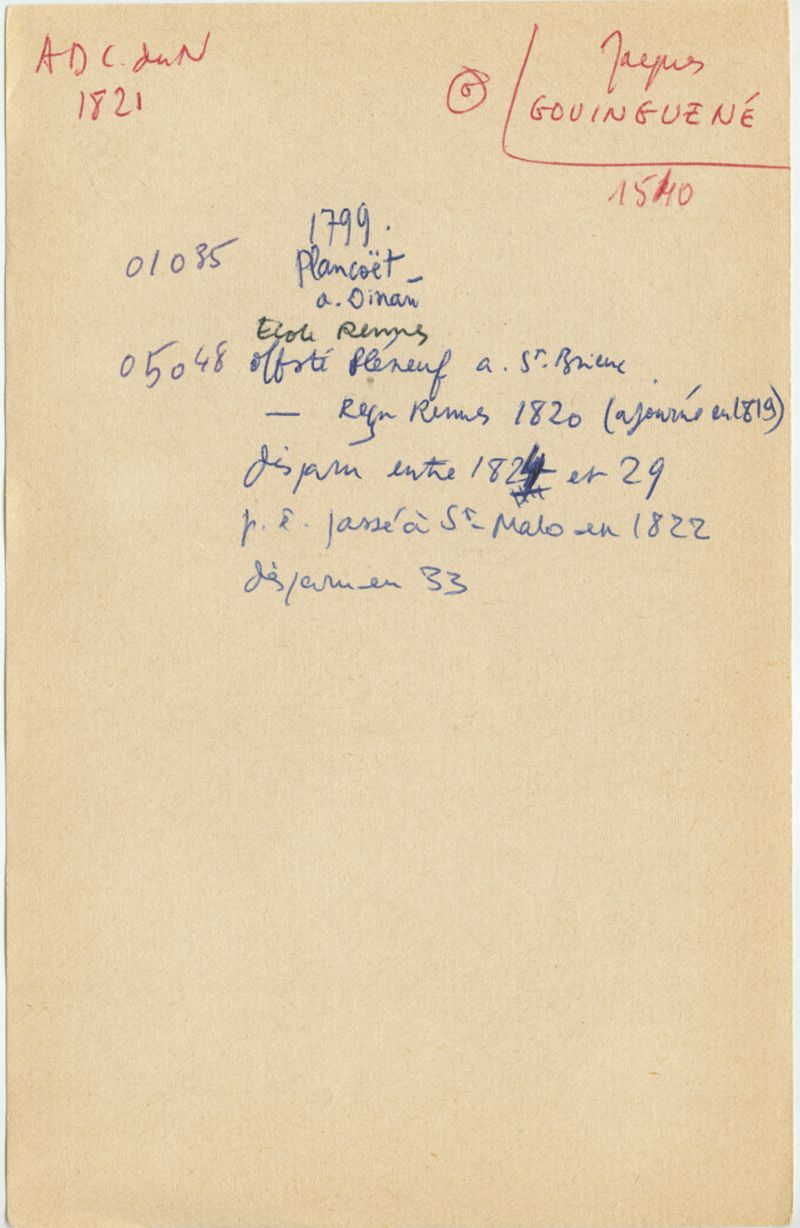 A D C. du N
1821
Jacques
GOUINGUENÉ
1540
1799.
01035
Plancoët
a. Dinan
Ecole Rennes
05048 offsté Pléneuf a. St-Brieuc
— Reçu Rennes 1820 (ajourné en 1819)
disparu entre 1824 et 29
p. ê. passé à St-Malo en 1822
disparu en 33